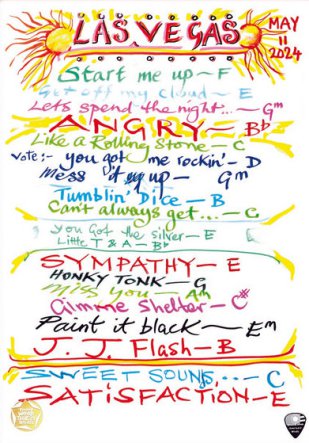 LAS VEGAS
MAY
11
2024
Start me up - F
Get off my cloud - E
Lets spend the night... - Gm
ANGRY - Bb
Like a Rolling Stone - C
Vote:- you got me rockin' - D
Mess it up - Gm
Tumblin' Dice - B
Can't always get... - C
You Got the Silver - E
Little T & A - Bb
SYMPATHY - E
HONKY TONK - G
Miss you - Am
Gimme Shelter - C#
Paint it black - Em
J. J. Flash - B
SWEET SOUNDS... - C
SATISFACTION - E